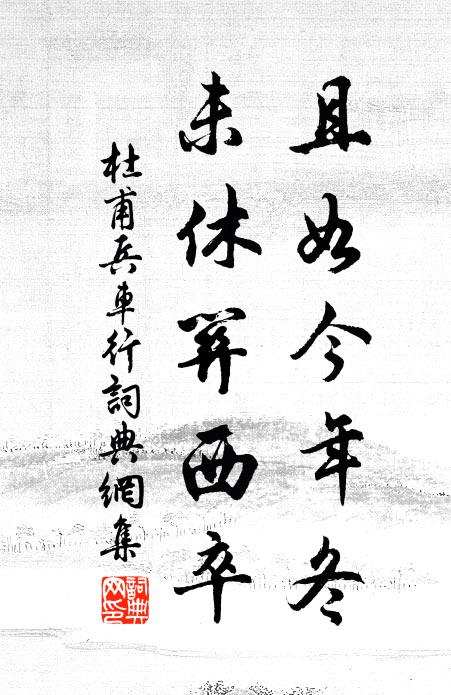 且如今年冬
未休關西卒
杜甫兵車行詞典網集
詞典网印